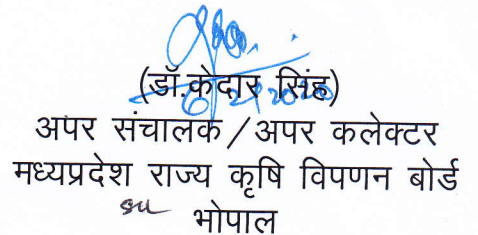 (डॉ.केदार सिंह)
अपर संचालक/अपर कलेक्टर
मध्यप्रदेश राज्य कृषि विपणन बोर्ड
भोपाल